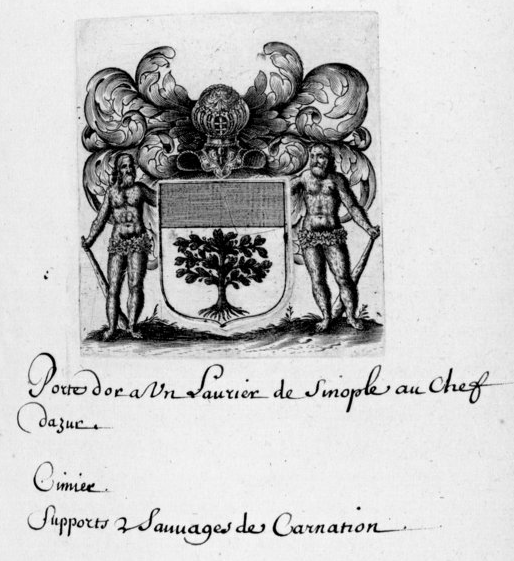 Porte dor a Vn Laurier de Sinople au Chef
dazur.
Cimier.
Supports 2 Sauuages de Carnation.